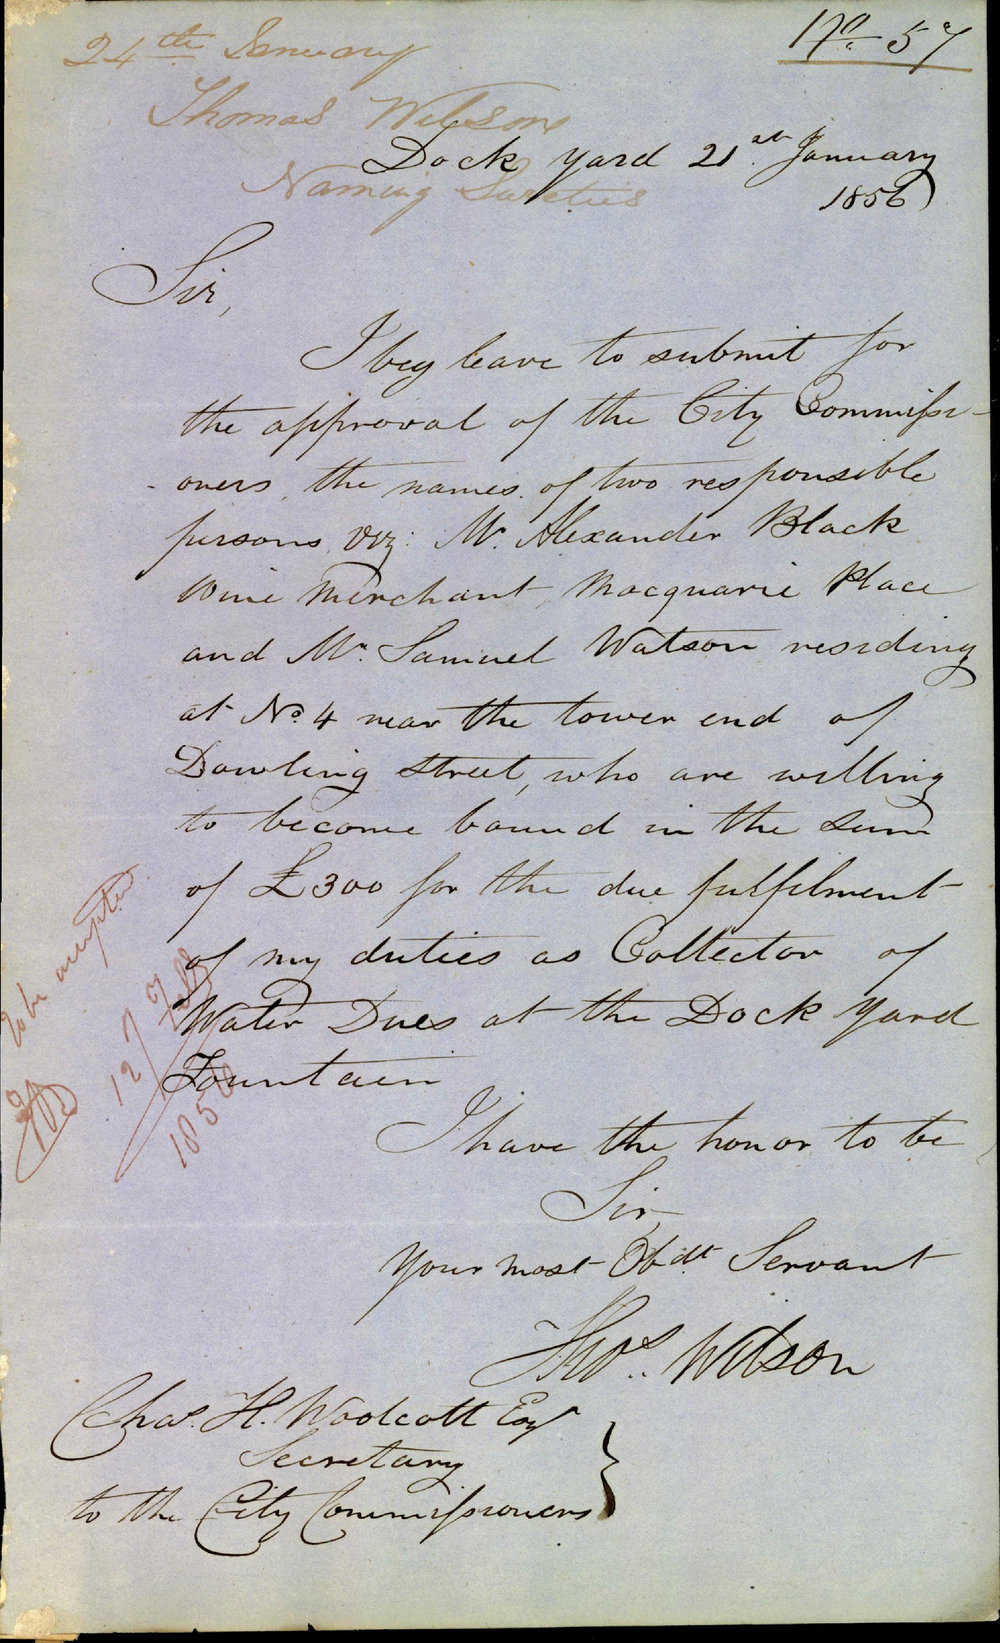 No. 57
24th January
Thomas Wilson
Naming Sureties
Dock Yard 21st January
1856
Sir,
I beg leave to submit for
the approval of the City Commissi-
-oners, the names of two responsible
persons, viz: Mr. Alexander Black
Wine Merchant, Macquarie Place
and Mr. Samuel Watson residing
at No. 4 near the lower end of
Dowling Street, who are willing
to become bound in the sum
of £300 for the due fulfilment
of my duties as Collector of
Water Dues at the Dock Yard
Fountain
I have the honor to be
Sir,
Your most Obdt Servant
Thos. Wilson
Chas. H. Woolcott Esqr
Secretary
to the City Commissioners
To be accepted
12 Feb
1856